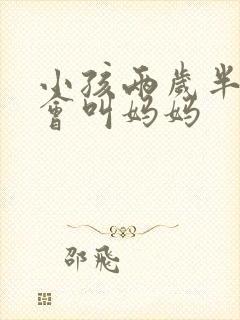 小孩兩歲半
會叫妈妈
邵飛